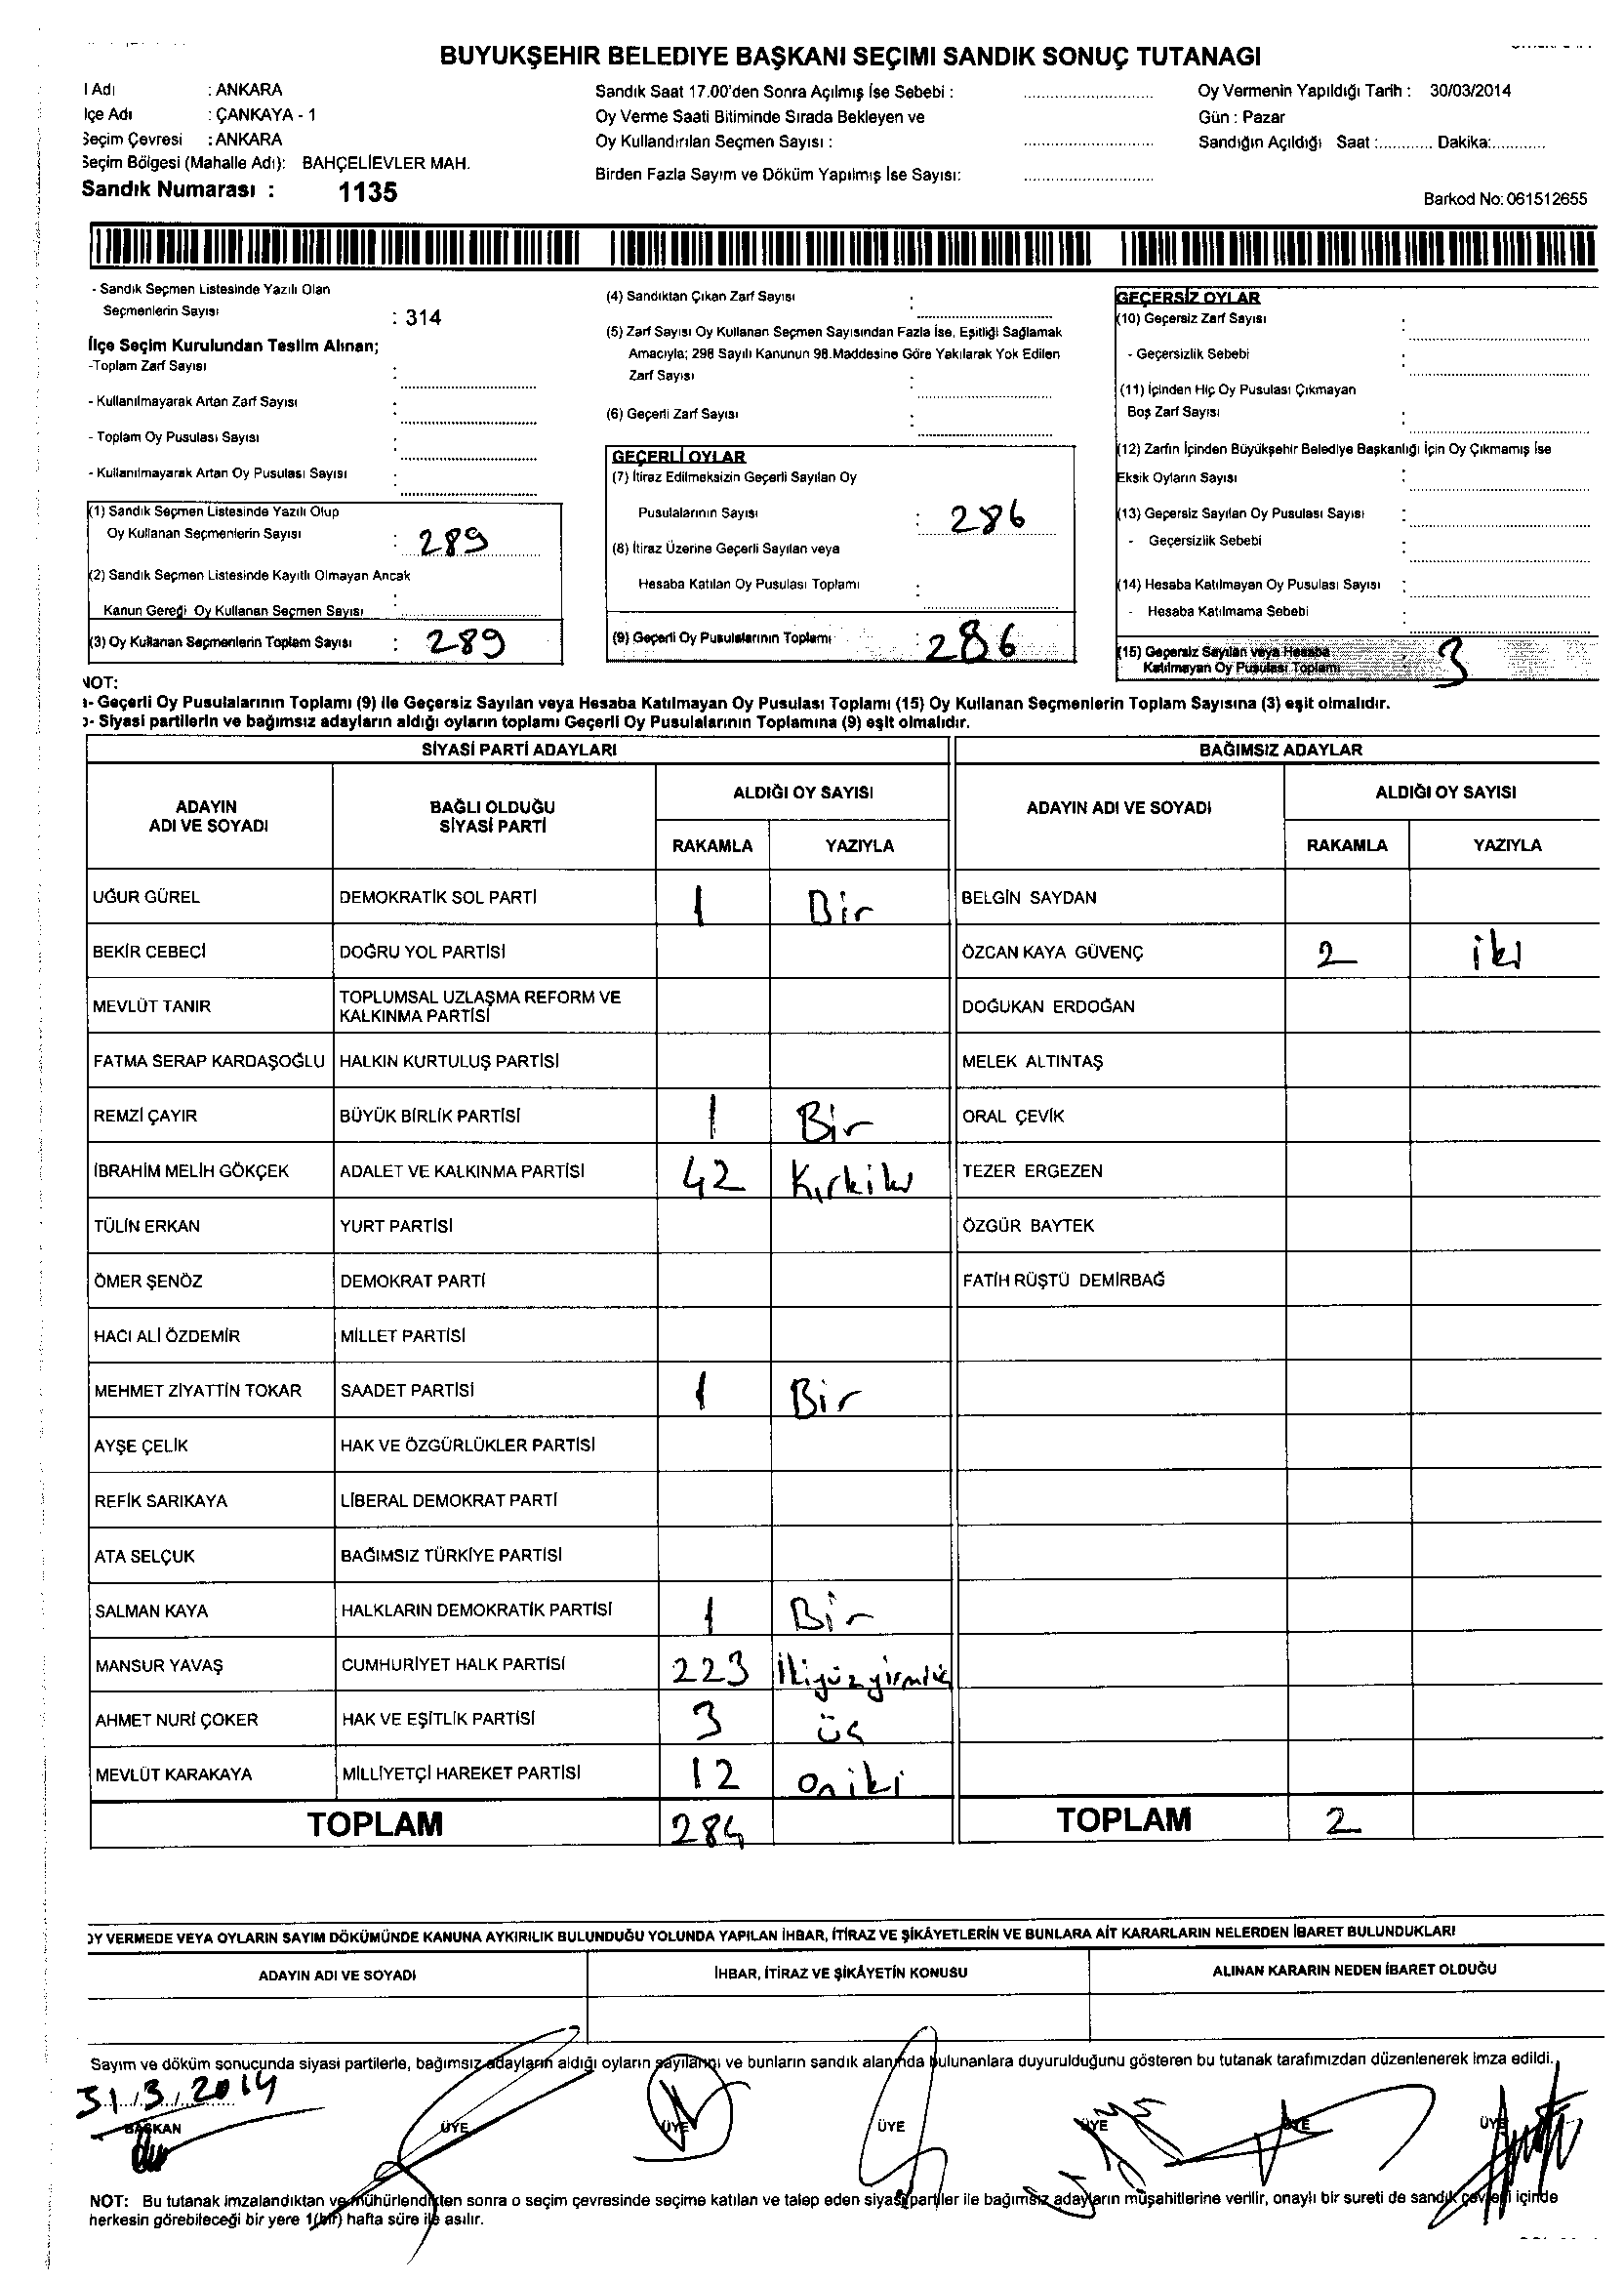 BUYUKŞEHIR BELEDIYE BAŞKANI SEÇIMI SANDIK SONUÇ TUTANAGI
l Adı : ANKARA
lçe Adı : ÇANKAYA - 1
Seçim Çevresi : ANKARA
Seçim Bölgesi (Mahalle Adı): BAHÇELİEVLER MAH.
Sandık Numarası : 1135
Sandık Saat 17.00'den Sonra Açılmış İse Sebebi :
Oy Verme Saati Bitiminde Sırada Bekleyen ve
Oy Kullandırılan Seçmen Sayısı :
Birden Fazla Sayım ve Döküm Yapılmış İse Sayısı:
Oy Vermenin Yapıldığı Tarih : 30/03/2014
Gün : Pazar
Sandığın Açıldığı Saat :............ Dakika:............
Barkod No: 061512655
- Sandık Seçmen Listesinde Yazılı Olan
Seçmenlerin Sayısı : 314
İlçe Seçim Kurulundan Teslim Alınan;
-Toplam Zarf Sayısı :
- Kullanılmayarak Artan Zarf Sayısı :
- Toplam Oy Pusulası Sayısı :
- Kullanılmayarak Artan Oy Pusulası Sayısı :
(1) Sandık Seçmen Listesinde Yazılı Olup
Oy Kullanan Seçmenlerin Sayısı : 289
(2) Sandık Seçmen Listesinde Kayıtlı Olmayan Ancak
Kanun Gereği Oy Kullanan Seçmen Sayısı :
(3) Oy Kullanan Seçmenlerin Toplam Sayısı : 289
(4) Sandıktan Çıkan Zarf Sayısı :
(5) Zarf Sayısı Oy Kullanan Seçmen Sayısından Fazla İse, Eşitliği Sağlamak
Amacıyla; 298 Sayılı Kanunun 98.Maddesine Göre Yakılarak Yok Edilen
Zarf Sayısı :
(6) Geçerli Zarf Sayısı :
GEÇERLİ OYLAR
(7) İtiraz Edilmeksizin Geçerli Sayılan Oy
Pusulalarının Sayısı : 286
(8) İtiraz Üzerine Geçerli Sayılan veya
Hesaba Katılan Oy Pusulası Toplamı :
(9) Geçerli Oy Pusulalarının Toplamı : 286
GEÇERSİZ OYLAR
(10) Geçersiz Zarf Sayısı :
- Geçersizlik Sebebi :
(11) İçinden Hiç Oy Pusulası Çıkmayan
Boş Zarf Sayısı :
(12) Zarfın İçinden Büyükşehir Belediye Başkanlığı İçin Oy Çıkmamış İse
Eksik Oyların Sayısı :
(13) Geçersiz Sayılan Oy Pusulası Sayısı :
- Geçersizlik Sebebi :
(14) Hesaba Katılmayan Oy Pusulası Sayısı :
- Hesaba Katılmama Sebebi :
(15) Geçersiz Sayılan veya Hesaba
Katılmayan Oy Pusulası Toplamı 3
NOT:
- Geçerli Oy Pusulalarının Toplamı (9) ile Geçersiz Sayılan veya Hesaba Katılmayan Oy Pusulası Toplamı (15) Oy Kullanan Seçmenlerin Toplam Sayısına (3) eşit olmalıdır.
- Siyasi partilerin ve bağımsız adayların aldığı oyların toplamı Geçerli Oy Pusulalarının Toplamına (9) eşit olmalıdır.
SİYASİ PARTİ ADAYLARI BAĞIMSIZ ADAYLAR
ADAYIN ADI VE SOYADI BAĞLI OLDUĞU SİYASİ PARTİ ALDIĞI OY SAYISI ADAYIN ADI VE SOYADI ALDIĞI OY SAYISI
RAKAMLA YAZIYLA RAKAMLA YAZIYLA
UĞUR GÜREL DEMOKRATİK SOL PARTİ 1 Bir BELGİN SAYDAN
BEKİR CEBECİ DOĞRU YOL PARTİSİ ÖZCAN KAYA GÜVENÇ 2 iki
MEVLÜT TANIR TOPLUMSAL UZLAŞMA REFORM VE KALKINMA PARTİSİ DOĞUKAN ERDOĞAN
FATMA SERAP KARDAŞOĞLU HALKIN KURTULUŞ PARTİSİ MELEK ALTINTAŞ
REMZİ ÇAYIR BÜYÜK BİRLİK PARTİSİ 1 Bir ORAL ÇEVİK
İBRAHİM MELİH GÖKÇEK ADALET VE KALKINMA PARTİSİ 42 Kırkiki TEZER ERGEZEN
TÜLİN ERKAN YURT PARTİSİ ÖZGÜR BAYTEK
ÖMER ŞENÖZ DEMOKRAT PARTİ FATİH RÜŞTÜ DEMİRBAĞ
HACI ALİ ÖZDEMİR MİLLET PARTİSİ
MEHMET ZİYATTİN TOKAR SAADET PARTİSİ 1 Bir
AYŞE ÇELİK HAK VE ÖZGÜRLÜKLER PARTİSİ
REFİK SARIKAYA LİBERAL DEMOKRAT PARTİ
ATA SELÇUK BAĞIMSIZ TÜRKİYE PARTİSİ
SALMAN KAYA HALKLARIN DEMOKRATİK PARTİSİ 1 Bir
MANSUR YAVAŞ CUMHURİYET HALK PARTİSİ 223
AHMET NURİ ÇOKER HAK VE EŞİTLİK PARTİSİ 3 üç
MEVLÜT KARAKAYA MİLLİYETÇİ HAREKET PARTİSİ 12 oniki
TOPLAM 284 TOPLAM 2
OY VERMEDE VEYA OYLARIN SAYIM DÖKÜMÜNDE KANUNA AYKIRILIK BULUNDUĞU YOLUNDA YAPILAN İHBAR, İTİRAZ VE ŞİKÂYETLERİN VE BUNLARA AİT KARARLARIN NELERDEN İBARET BULUNDUKLARI
ADAYIN ADI VE SOYADI İHBAR, İTİRAZ VE ŞİKÂYETİN KONUSU ALINAN KARARIN NEDEN İBARET OLDUĞU
Sayım ve döküm sonucunda siyasi partilerle, bağımsız adayların aldığı oyların sayılarını ve bunların sandık alanında bulunanlara duyurulduğunu gösteren bu tutanak tarafımızdan düzenlenerek imza edildi.
31.3.2014
BAŞKAN ÜYE ÜYE ÜYE ÜYE ÜYE ÜYE
NOT: Bu tutanak imzalandıktan ve mühürlendikten sonra o seçim çevresinde seçime katılan ve talep eden siyasi partiler ile bağımsız adayların müşahitlerine verilir, onaylı bir sureti de sandık çevresi içinde
herkesin görebileceği bir yere 1(bir) hafta süre ile asılır.